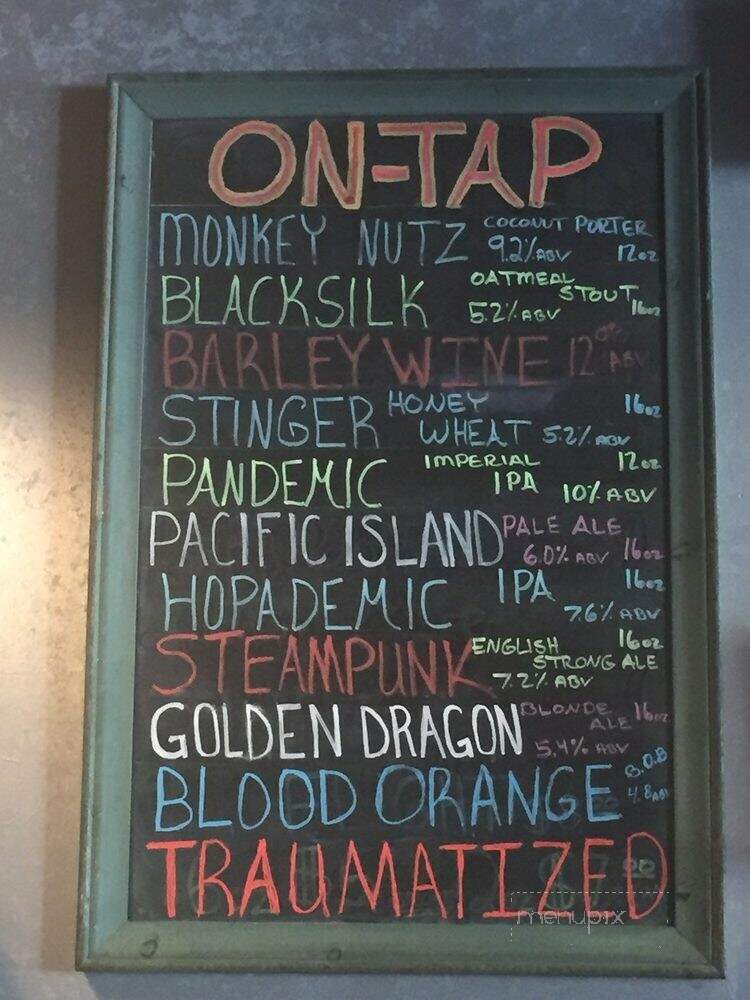 ON-TAP
MONKEY NUTZ COCONUT PORTER 9.2% ABV 12oz
BLACKSILK OATMEAL STOUT 5.2% ABV 16oz
BARLEY WINE 12 ABV
STINGER HONEY WHEAT 5.2% ABV 16oz
PANDEMIC IMPERIAL IPA 10% ABV 12oz
PACIFIC ISLAND PALE ALE 6.0% ABV 16oz
HOPADEMIC IPA 7.6% ABV 16oz
STEAMPUNK ENGLISH STRONG ALE 7.2% ABV 16oz
GOLDEN DRAGON BLONDE ALE 5.4% ABV 16oz
BLOOD ORANGE 4.8 ABV
TRAUMATIZED
menupix